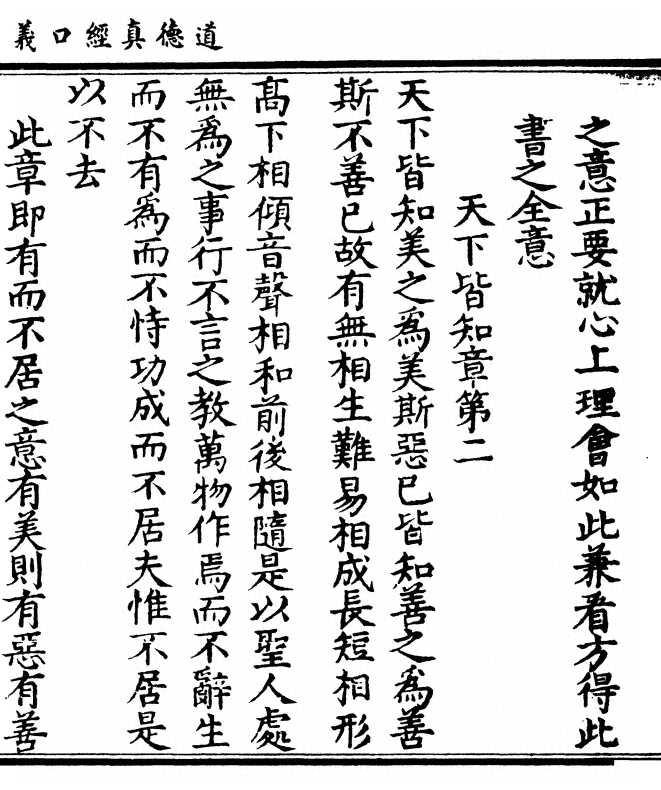 道德真經口義
之意正要就心上理會如此兼看方得此
書之全意
天下皆知章第二
天下皆知美之為美斯惡已皆知善之為善
斯不善已故有無相生難易相成長短相形
髙下相傾音聲相和前後相隨是以聖人處
無為之事行不言之教萬物作焉而不辭生
而不有為而不恃功成而不居夫惟不居是
以不去
此章即有而不居之意有美則有惡有善